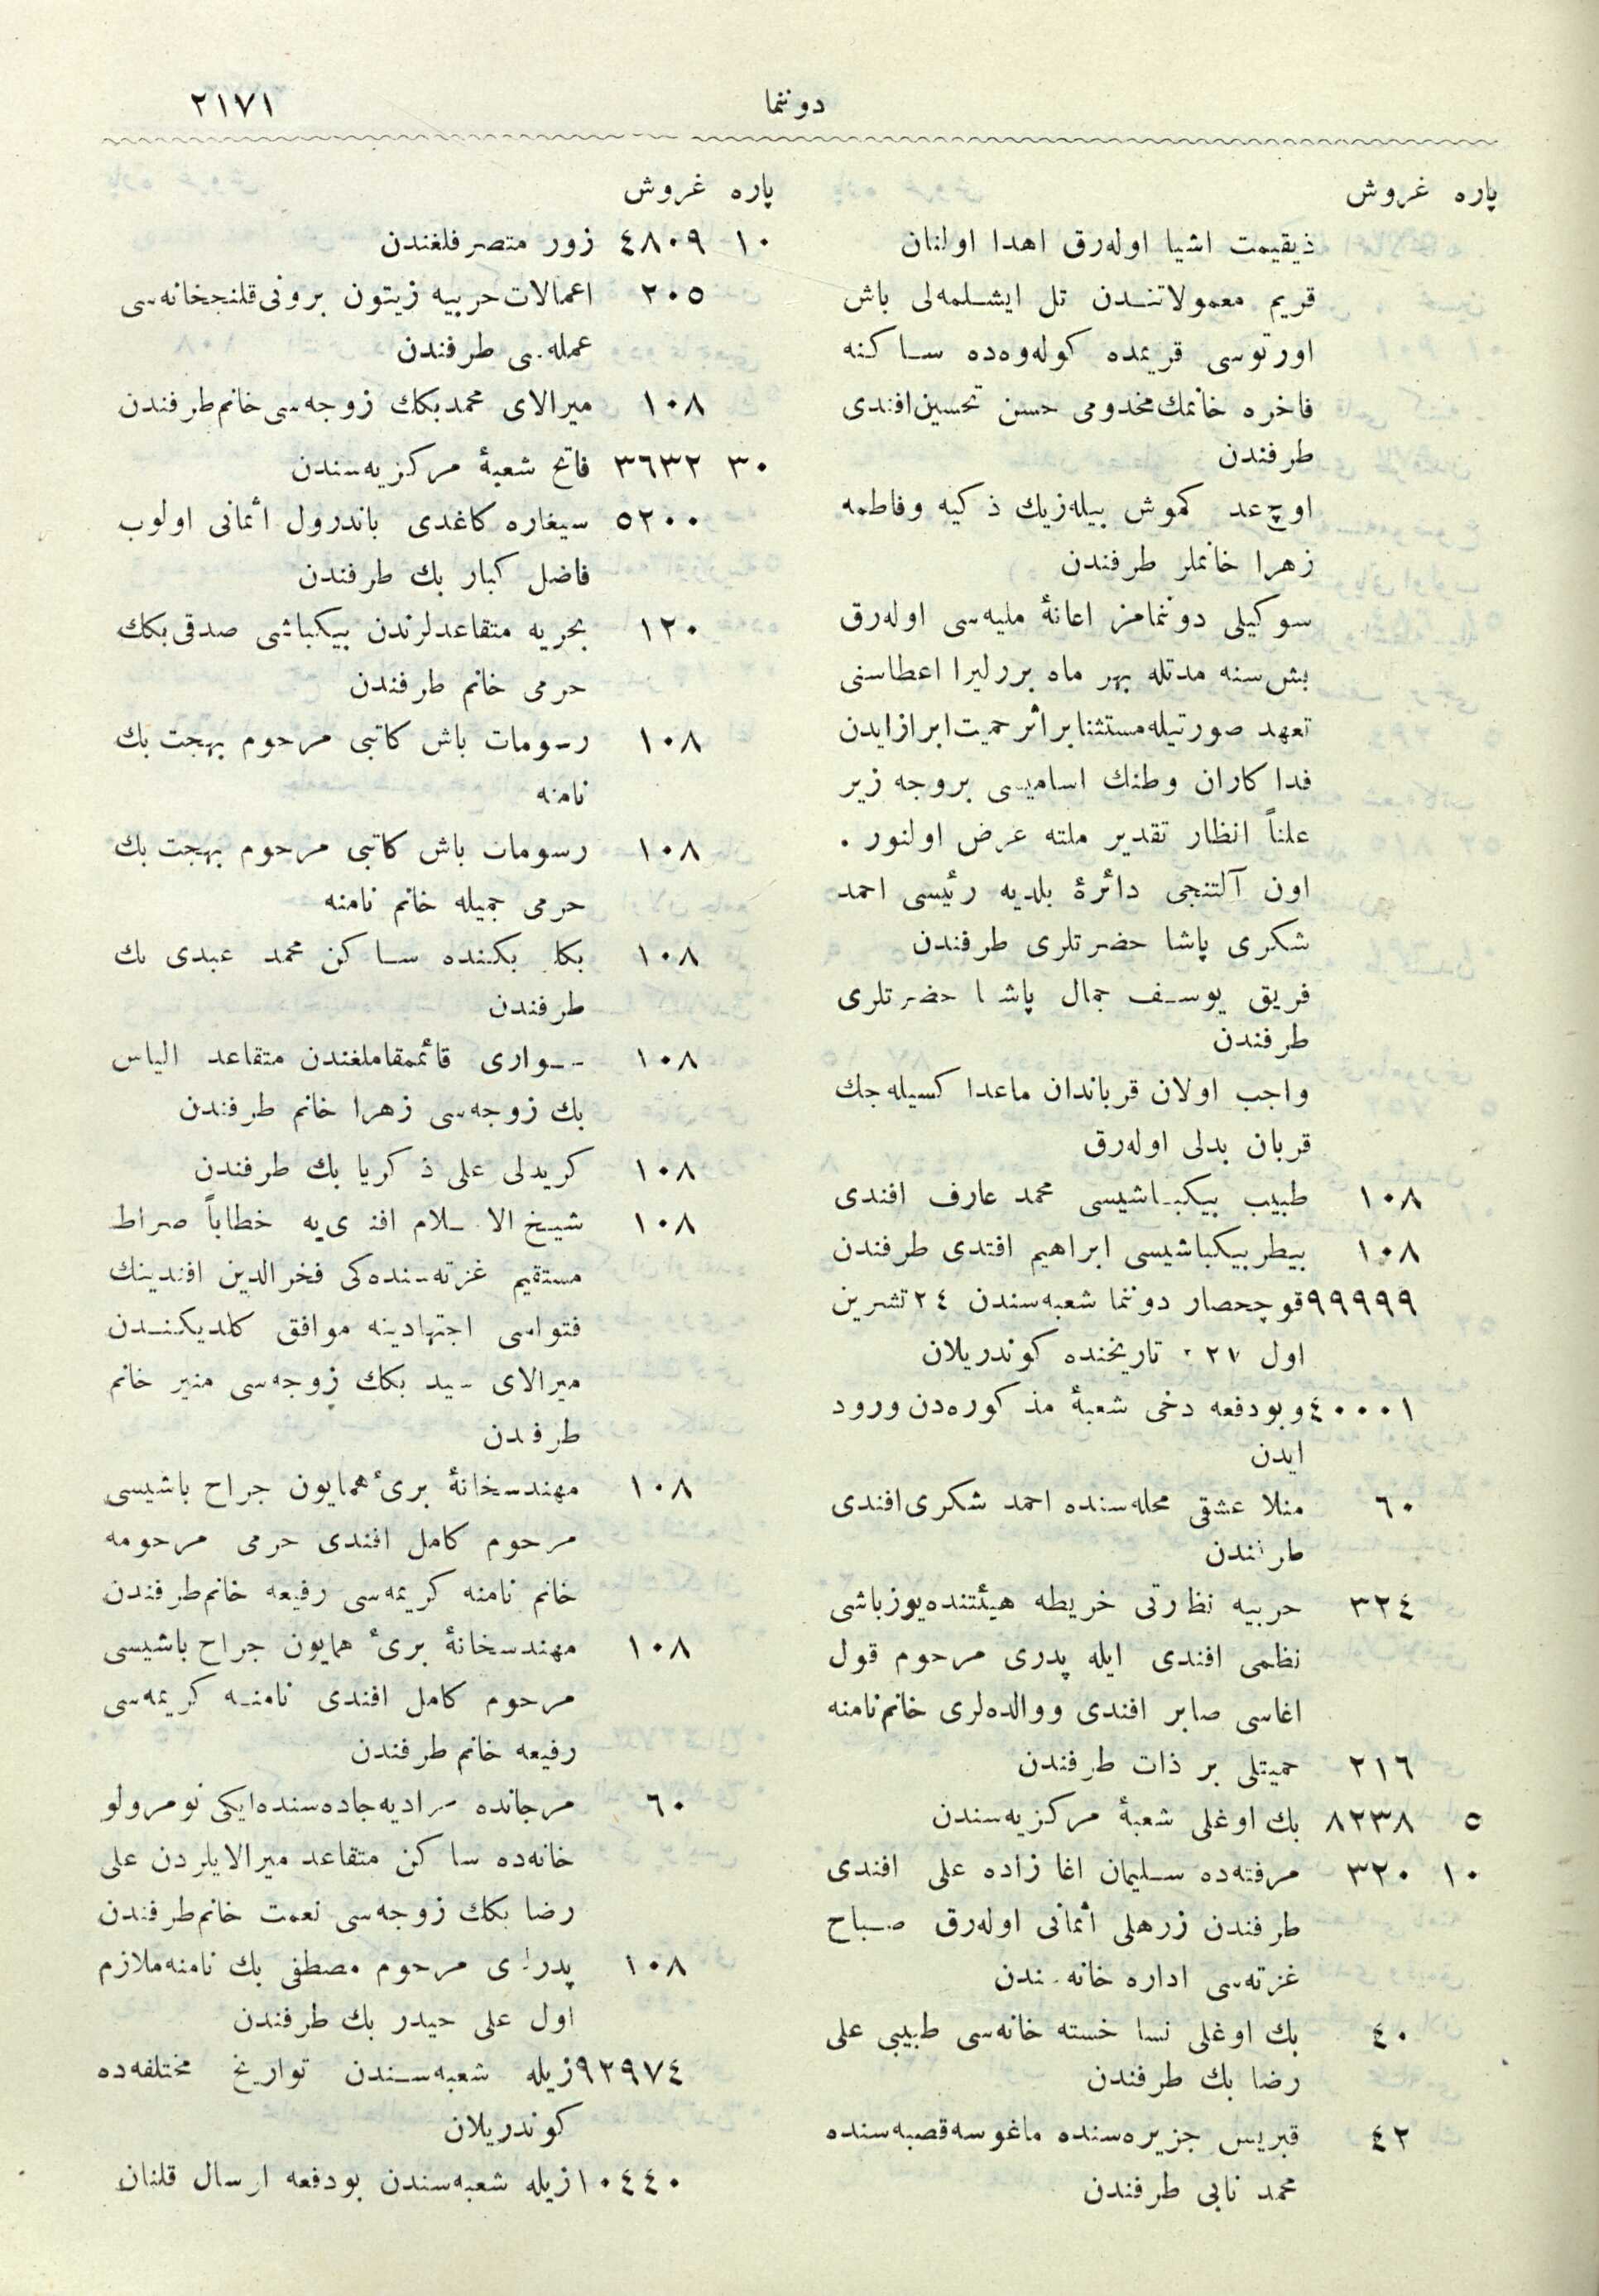 دوننما
٢١٧١
پاره غروش
ذیقیمت اشیا اوله‌رق اهدا اولنان
قریم معمولاتندن تل ایشلمه‌لی باش
اورتوسی قریمده كوله‌وه‌ده ساكنه
فاخره خانمك مخدومی حسن تحسین افندی
طرفندن
اوچ عدد كموش بیله‌زیك ذكیه وفاطمه
زهرا خانملر طرفندن
سوكیلی دوننمامز اعانهٔ ملیه‌سی اوله‌رق
بش سنه مدتله بهر ماه بررلیرا اعطاسنی
تعهد صورتیله مستثنا بر اثر حمیت ابراز ایدن
فداكاران وطنك اسامیسی بروجه زیر
علناً انظار تقدیر ملته عرض اولنور .
اون آلتنجی دائرهٔ بلدیه رئیسی احمد
شكری پاشا حضرتلری طرفندن
فریق یوسف جمال پاشا حضرتلری
طرفندن
واجب اولان قرباندان ماعدا كسیله‌جك
قربان بدلی اوله‌رق
١٠٨ طبیب بیكباشیسی محمد عارف افندی
١٠٨ بیطر بیكباشیسی ابراهیم افندی طرفندن
٩٩٩٩٩ قوچحصار دوننما شعبه‌سندن ٢٤ تشرین
اول ٣٢٧ تاریخنده كوندریلان
٤٠٠٠١ وبودفعه دخی شعبهٔ مذكوره‌دن ورود
ایدن
٦٠ منلا عشقی محله‌سنده احمد شكری افندی
طرفندن
٣٢٤ حربیه نظارتی خریطه هیئتنده یوزباشی
نظمی افندی ایله پدری مرحوم قول
اغاسی صابر افندی ووالده‌لری خانم نامنه
٢١٦ حمیتلی بر ذات طرفندن
٥ ٨٢٣٨ بك اوغلی شعبهٔ مركزیه‌سندن
١٠ ٣٢٠ مرفته‌ده سلیمان اغا زاده علی افندی
طرفندن زرهلی اثمانی اوله‌رق صباح
غزته‌سی اداره خانه‌سندن
٤٠ بك اوغلی نسا خسته خانه‌سی طبیبی علی
رضا بك طرفندن
٤٢ قبریس جزیره‌سنده ماغوسه قصبه‌سنده
محمد نابی طرفندن
پاره غروش
١٠ ٤٨٠٩ زور متصرفلغندن
٢٠٥ اعمالات حربیه زیتون برونی قلنجخانه‌سی
عمله‌سی طرفندن
١٠٨ میرالای محمد بكك زوجه‌سی خانم طرفندن
٣٠ ٣٦٣٢ فاتح شعبهٔ مركزیه‌سندن
٥٢٠٠ سیغاره كاغدی باندرول اثمانی اولوب
فاضل كبار بك طرفندن
١٢٠ بحریه متقاعدلرندن بیكباشی صدقی بكك
حرمی خانم طرفندن
١٠٨ رسومات باش كاتبی مرحوم بهجت بك
نامنه
١٠٨ رسومات باش كاتبی مرحوم بهجت بك
حرمی جمیله خانم نامنه
١٠٨ بكلر بكنده ساكن محمد عبدی بك
طرفندن
١٠٨ سواری قائممقاملغندن متقاعد الیاس
بك زوجه‌سی زهرا خانم طرفندن
١٠٨ كریدلی علی ذكریا بك طرفندن
١٠٨ شیخ الاسلام افندی‌یه خطاباً صراط
مستقیم غزته‌سنده‌كی فخرالدین افندینك
فتواسی اجتهادینه موافق كلدیكندن
میرالای سید بكك زوجه‌سی منیر خانم
طرفندن
١٠٨ مهندسخانهٔ بریٔ همایون جراح باشیسی
مرحوم كامل افندی حرمی مرحومه
خانم نامنه كریمه‌سی رفیعه خانم طرفندن
١٠٨ مهندسخانهٔ بریٔ همایون جراح باشیسی
مرحوم كامل افندی نامنه كریمه‌سی
رفیعه خانم طرفندن
٦٠ مرجانده مرادیه جاده‌سنده ایكی نومرولو
خانه‌ده ساكن متقاعد میرالایلردن علی
رضا بكك زوجه‌سی نعمت خانم طرفندن
١٠٨ پدرلری مرحوم مصطفی بك نامنه ملازم
اول علی حیدر بك طرفندن
٩٢٩٧٤ زیله شعبه‌سندن تواریخ مختلفه‌ده
كوندریلان
١٠٤٤٠ زیله شعبه‌سندن بودفعه ارسال قلنان